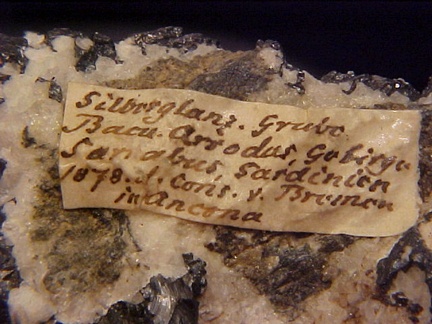 Silberglanz. Grube
Bacu Arrodas, Gebirge
Sarrabus, Sardinien
1878. d. Cons. v. Bremen
in Ancona